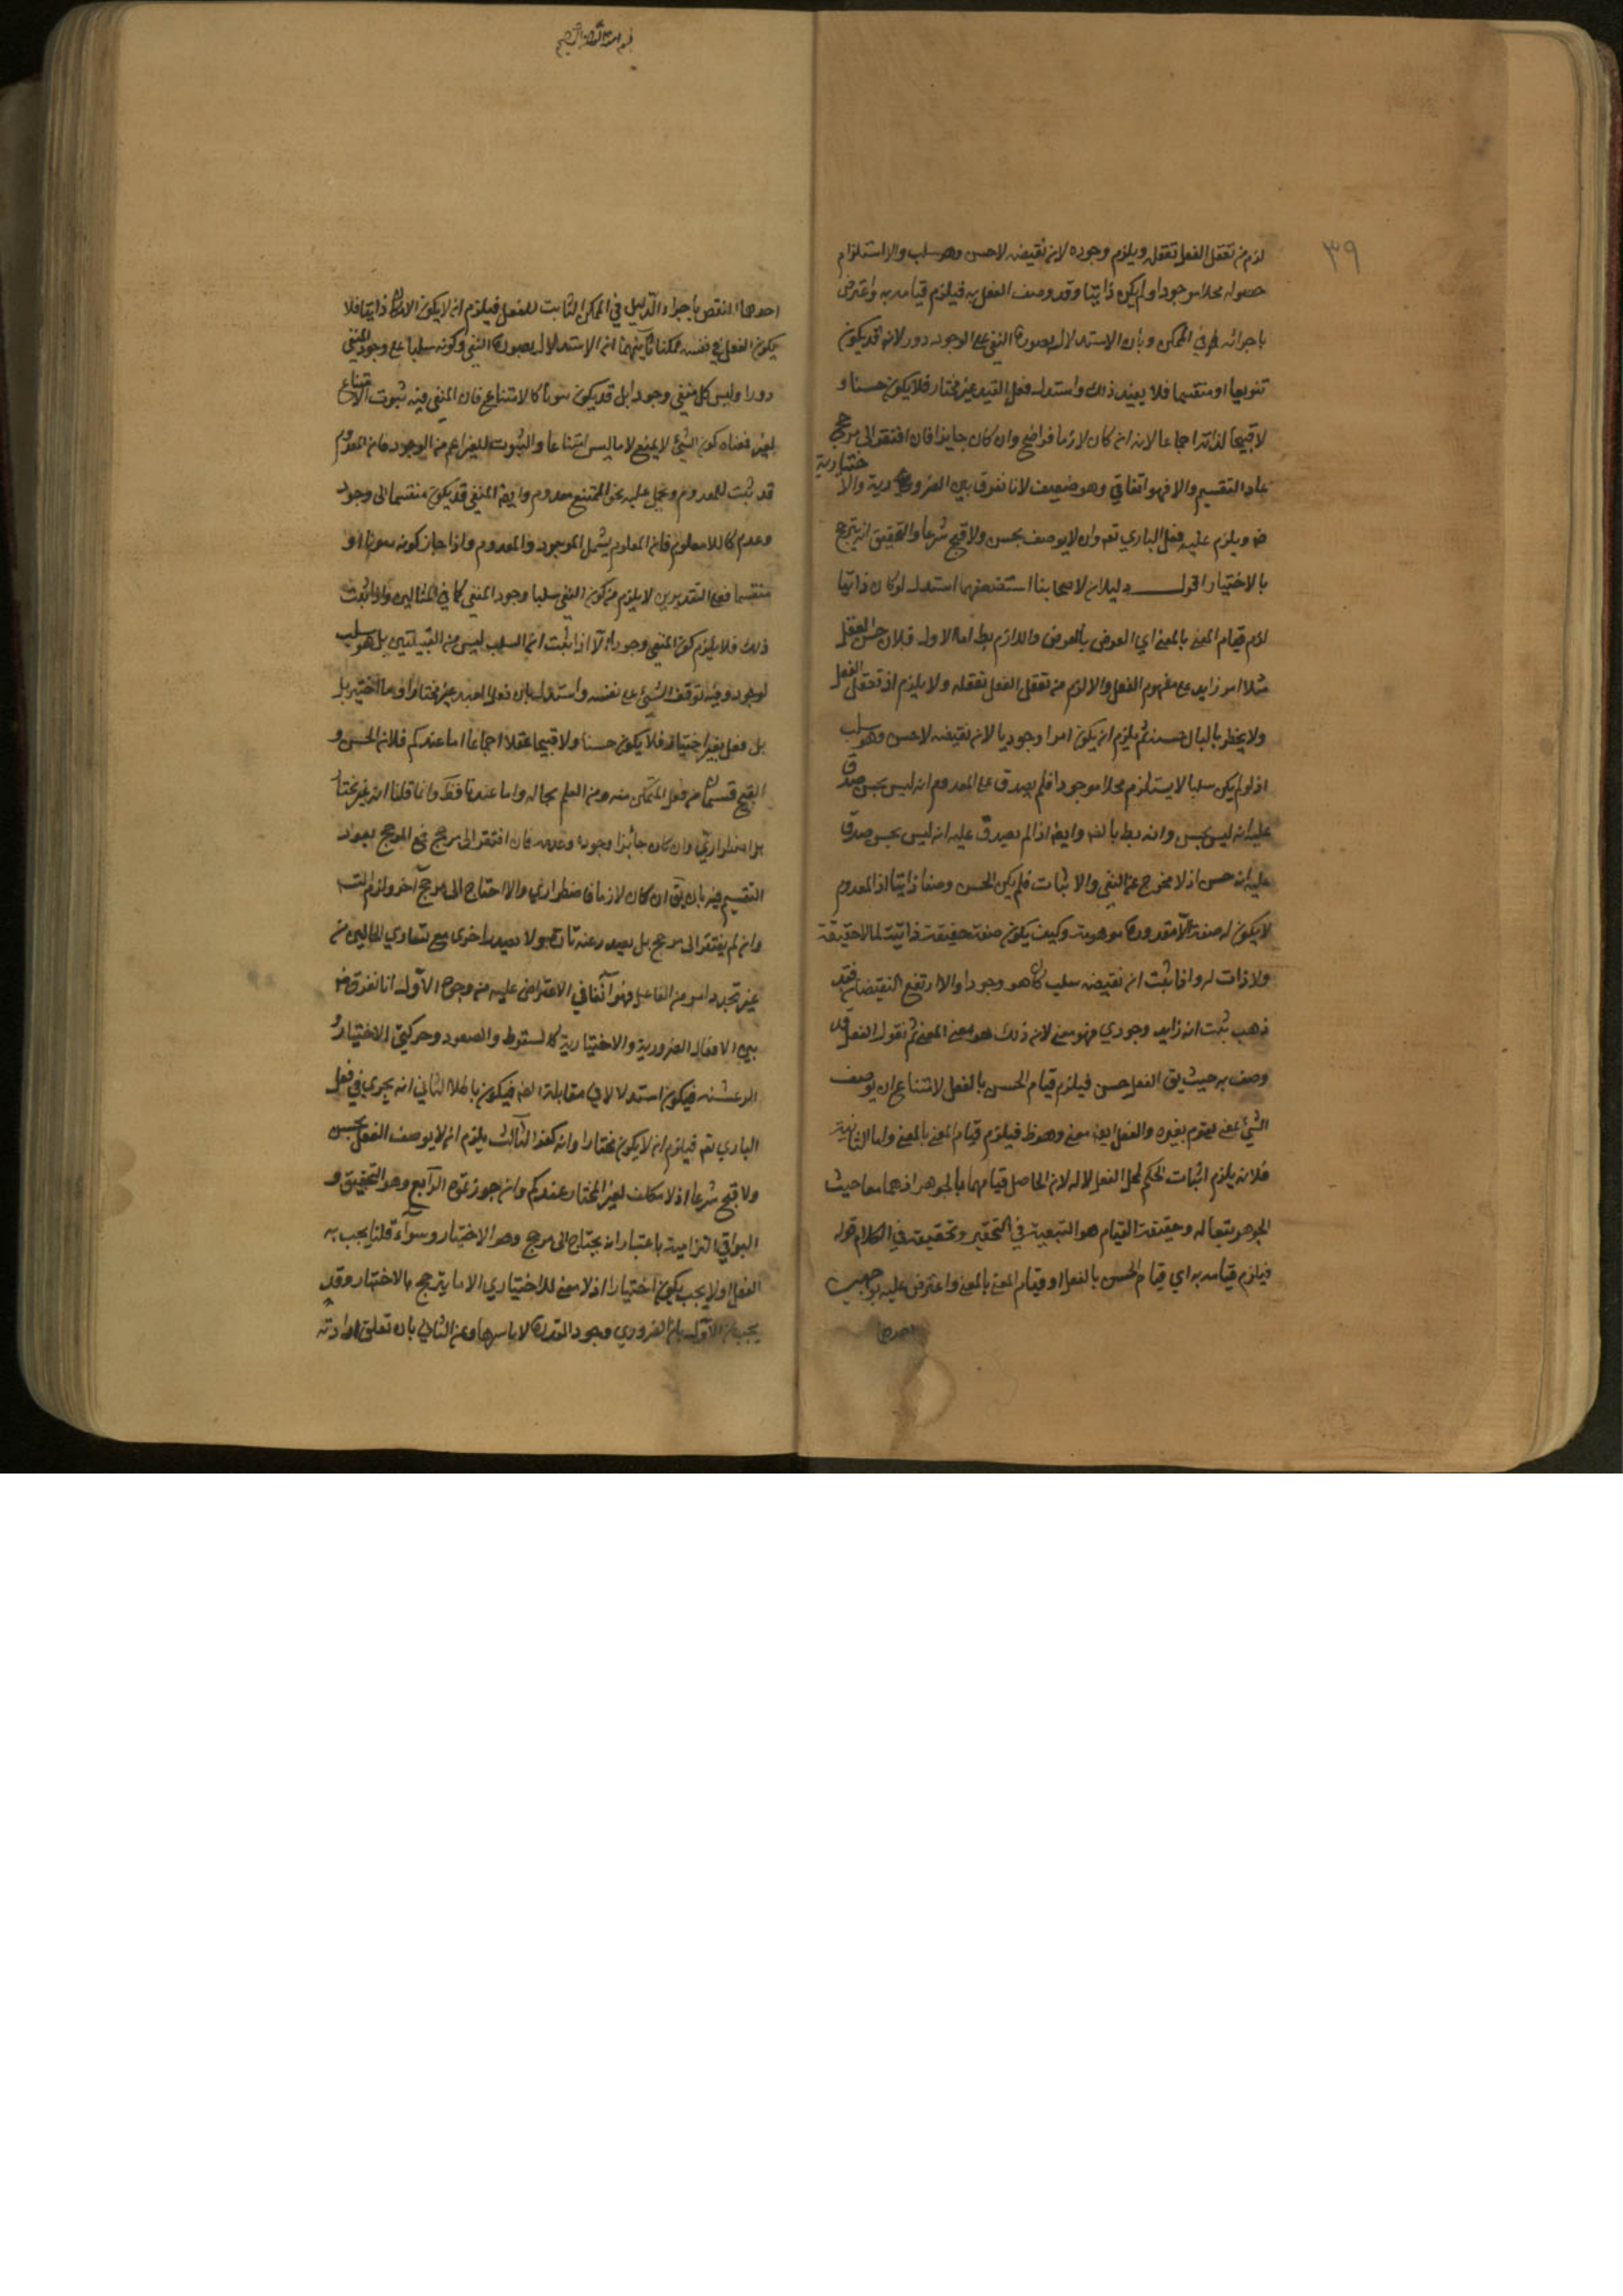 ٣٩
لزم من تعقل الفعل تعقله ويلزم وجوده لان نقيضه لاحسن وهو سلب والا استلزام
حصوله محلا موجودا ولم يكن ذاتيا وقد وصف الفعل به فيلزم قيامه به واعترض
باجرائه في الممكن وبان الاستدلال بصورة النفي على الوجود دور لانه قد يكون
ثبوتيا او منقسما فلا يفيد ذلك واستدل فعل العبد غير مختار فلا يكون حسنا و
لا قبيحا لذاته اجماعا لانه ان كان لازما فواضح وان كان جايزا فان افتقر الى مرجح
عاد التقسيم والا فهو اتفاقي وهو ضعيف لانا نفرق بين الضرورية والاختيارية
ضه ويلزم عليه فعل الباري تعه وان لا يوصف بحسن ولا قبح شرعا والتحقيق انه يترجح
بالاختيار اقول دليلان لاصحابنا استضعفهما استدل لو كان ذاتيا
لزم قيام المعنى بالمعنى اي العرض بالعرض واللازم بط اما الاول فلان حسن الفعل
مثلا امر زايد على مفهوم الفعل والا لزم من تعقل الفعل تعقله ولا يلزم اذ قد تعقل الفعل
ولا يخطر بالبال حسنه ثم يلزم ان يكون امرا وجوديا لان نقيضه لاحسن وهو سلب
اذ لو لم يكن سلبا لا يستلزم محلا موجودا فلم يصدق على المعدوم انه ليس بحسن صدق
عليه انه ليس بحسن وانه بط بالضه وايضه اذا لم يصدق عليه انه ليس بحسن صدق
عليه انه حسن اذ لا مخرج عن النفي والاثبات فلم يكن الحسن وصفا ذاتيا اذ المعدوم
لا يكون له صفة الا مقدورة موهومة وكيف يكون صفة حقيقة ذاتية لما لا حقيقة
ولا ذات له واذا ثبت ان نقيضه سلب كان هو وجودا والا ارتفع النقيضان فقد
ذهب ثبت انه زايد وجودي فهو معنى لان ذلك هو معنى المعنى ثم نقول الفعل قد
وصف به حيث يق الفعل حسن فيلزم قيام الحسن بالفعل لامتناع ان يوصف
الشئ بمعنى يقوم بغيره والفعل ايضه معنى وهو ظ فيلزم قيام المعنى بالمعنى واما الثانية
فلانه يلزم اثبات الحكم لمحل الفعل لا له لان الحاصل قيامهما بالجوهر اذ هما معا حيث
الجوهر تبعا له وحقيقة القيام هو التبعية في التحيز وتحقيقه في الكلام قوله
فيلزم قيامه به اي قيام الحسن بالفعل او قيام المعنى بالمعنى واعترض عليه بوجهين
احدهما
بسم الله الرحمن الرحيم
احدهما النقض باجراء الدليل في الممكن الثابت للفعل فيلزم ان لا يكون الامكان ذاتيا فلا
يكون الفعل في نفسه ممكنا ثانيهما ان الاستدلال بصورة النفي وكونه سلبا على وجود المنفي
دورا وليس كل منفي وجودا بل قد يكون ثبوتا كالامتناع فان المنفي فيه ثبوت الامتناع
لغير فمعناه كون الشئ لا يمتنع لا ما ليس امتناعا والثبوت للغير اعم من الوجود فان المعدوم
قد ثبت للمعدوم ويحمل عليه نحو الممتنع معدوم وايضه المنفي قد يكون منقسما الى وجود
وعدم كاللامعلوم فان المعلوم يشمل الموجود والمعدوم واذا جاز كونه ثبوتا او
منقسما فعلى التقديرين لا يلزم من كون النفي سلبا وجود المنفي كما في المثالين واذا ثبت
ذلك فلا يلزم كون المنفي وجودا الا اذا ثبت ان السلب ليس من القبيلتين بل هو سلب
لوجود وفيه توقف الشئ على نفسه واستدل بان فعل العبد غير مختار او ما اختير بل
بل فعل بغير اختياره فلا يكون حسنا ولا قبيحا عقلا اجماعا اما عندكم فلان الحسن و
القبح قسمان من فعل المتمكن منه ومن العلم بحاله واما عندنا فظ وانما قلنا انه غير مختار
بل اضطراري وان كان جائزا وجوده وعدمه فان افتقر الى مرجح فمع المرجح يعود
التقسيم فيه بان يق ان كان لازما فاضطراري والا احتاج الى مرجح آخر ولزم التسه
وان لم يفتقر الى مرجح بل يصدر عنه تارة ولا يصدر اخرى مع تساوي الحالين من
غير تجدد امر من الفاعل فهو اتفاقي الاعتراض عليه من وجوه الاول انا نفرق ضه
بين الافعال الضرورية والاختيارية كالسقوط والصعود وحركتي الاختيار و
الرعشة فيكون استدلالا في مقابلة الضه فيكون باطلا الثاني انه يجري في فعل
الباري تعه فيلزم ان لا يكون مختارا وانه كفر الثالث يلزم ان لا يوصف الفعل بحسن
ولا قبح شرعا اذ لا تكليف لغير المختار عندكم وان جوزتموه الرابع وهو التحقيق و
البواقي الزامية باعتبار انه يحتاج الى مرجح وهو الاختيار وسواء قلنا يجب به
الفعل او لا يجب يكون اختياريا اذ لا معنى للاختياري الا ما يترجح بالاختيار وقد
يجب عن الاول بان الضروري وجود القدرة لا تاثيرها وعن الثاني بان تعلق ارادته